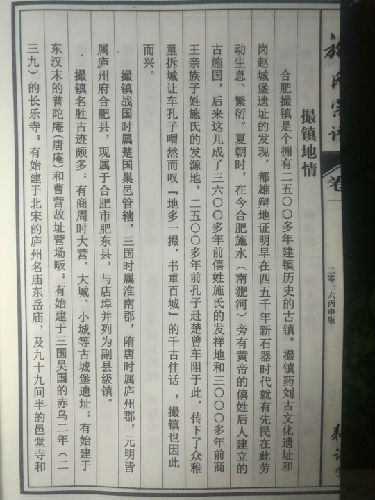 撮镇地情
合肥撮镇是个拥有二五○○多年建镇历史的古镇。撮镇药刘古文化遗址和
岗赵城堡遗址的发现，都雄辩地证明早在四五千年新石器时代就有先民在此劳
动生息、繁衍。夏朝时，在今合肥施水（南淝河）旁有黄帝的僖姓后人建立的
古施国，后来这儿成了三六○○多年前僖姓施氏的发祥地和三○○○多年前商
王亲族子姓施氏的发源地。二五○○多年前孔子赴楚曾车阻于此，传下了众稚
童拆城让车孔子喟然而叹『地多一撮，书重百城』的千古佳话，撮镇也因此
而兴。
撮镇战国时属楚国巢邑管辖，三国时属淮南郡，隋唐时属庐州郡，元明皆
属庐州府合肥县，现属于合肥市肥东县，与店埠并列为副县级镇。
撮镇名胜古迹颇多：有商周时大营、大城、小城等古城堡遗址；有始建于
东汉末的普陀庵（唐庵）和曹营故址营场畈；有始建于三国吴国的赤乌二年（二
三九）的长乐寺；有始建于北宋的庐州名庙东岳庙，及九十九间半的邑堂寺和
卷一
二零一六丙申版